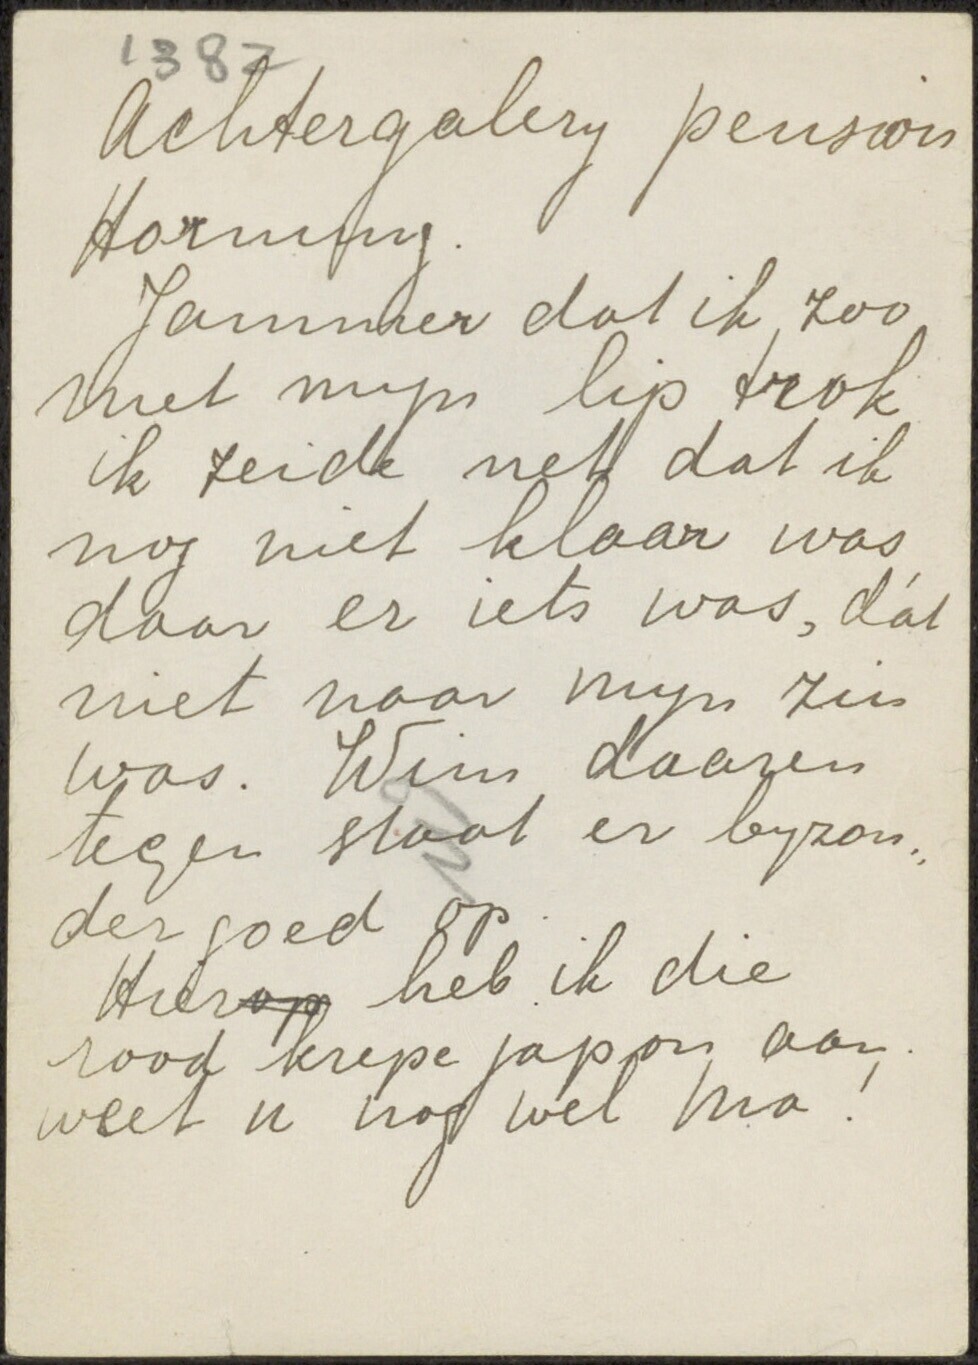 1387
Achtergalery pension
Hornung.
Jammer dat ik zoo
met myn lip trok
ik zeide net dat ik
nog niet klaar was
daar er iets was, dát
niet naar myn zin
was. Wim daaren
tegen staat er byzon„
der goed op.
Hierop heb ik die
rood krepe japon aan.
weet u nog wel Ma!